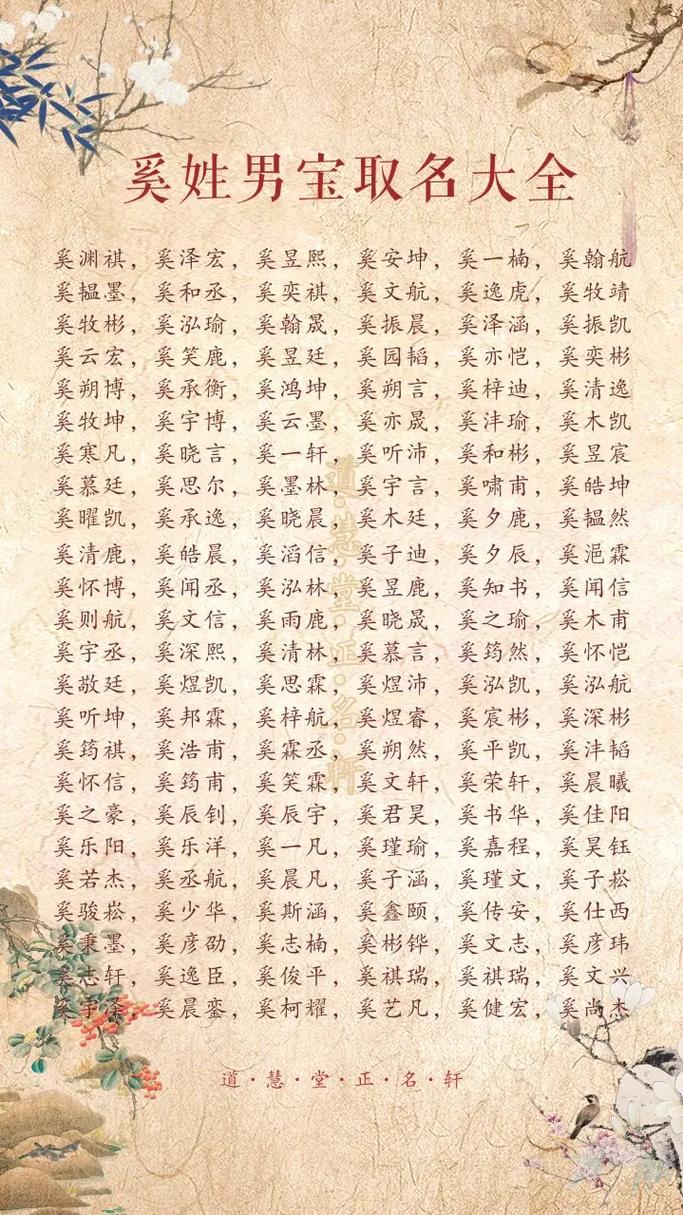 奚姓男宝取名大全
奚渊祺，奚泽宏，奚昱熙，奚安坤，奚一楠，奚翰航
奚韫墨，奚和丞，奚奕祺，奚文航，奚逸虎，奚牧靖
奚牧彬，奚泓瑜，奚翰晟，奚振晨，奚泽涵，奚振凯
奚云宏，奚笑鹿，奚昱廷，奚园韬，奚亦恺，奚奕彬
奚朔博，奚承衡，奚鸿坤，奚朔言，奚梓迪，奚清逸
奚牧坤，奚宇博，奚云墨，奚亦晟，奚沣瑜，奚木凯
奚寒凡，奚晓言，奚一轩，奚听沛，奚和彬，奚昱宸
奚慕廷，奚思尔，奚墨林，奚宇言，奚啸甫，奚皓坤
奚曜凯，奚承逸，奚晓晨，奚木廷，奚夕鹿，奚韫然
奚清鹿，奚皓晨，奚滔信，奚子迪，奚夕辰，奚浥霖
奚怀博，奚闻丞，奚泓林，奚昱鹿，奚知书，奚闻信
奚则航，奚文信，奚雨鹿，奚晓晟，奚之瑜，奚木甫
奚宇丞，奚深熙，奚清林，奚慕言，奚筠然，奚怀恺
奚敬廷，奚煜凯，奚思霖，奚煜沛，奚泓凯，奚泓航
奚听坤，奚邦霖，奚梓航，奚煜睿，奚宸彬，奚深彬
奚筠祺，奚浩甫，奚霖丞，奚朔然，奚平凯，奚沣韬
奚怀信，奚筠甫，奚笑霖，奚文轩，奚荣轩，奚晨曦
奚之豪，奚辰钊，奚辰宇，奚君昊，奚书华，奚佳阳
奚乐阳，奚乐洋，奚一凡，奚瑾瑜，奚嘉程，奚昊钰
奚若杰，奚丞航，奚晨凡，奚子涵，奚瑾文，奚子崧
奚骏崧，奚少华，奚斯涵，奚鑫颐，奚传安，奚仕西
奚秉墨，奚彦劭，奚志楠，奚彬铧，奚文志，奚彦玮
奚志轩，奚逸臣，奚俊平，奚祺瑞，奚祺瑞，奚文兴
奚宇泽，奚晨銮，奚柯耀，奚艺凡，奚健宏，奚尚杰
道·慧·堂·正·名·轩
道·慧·堂·正·名·轩